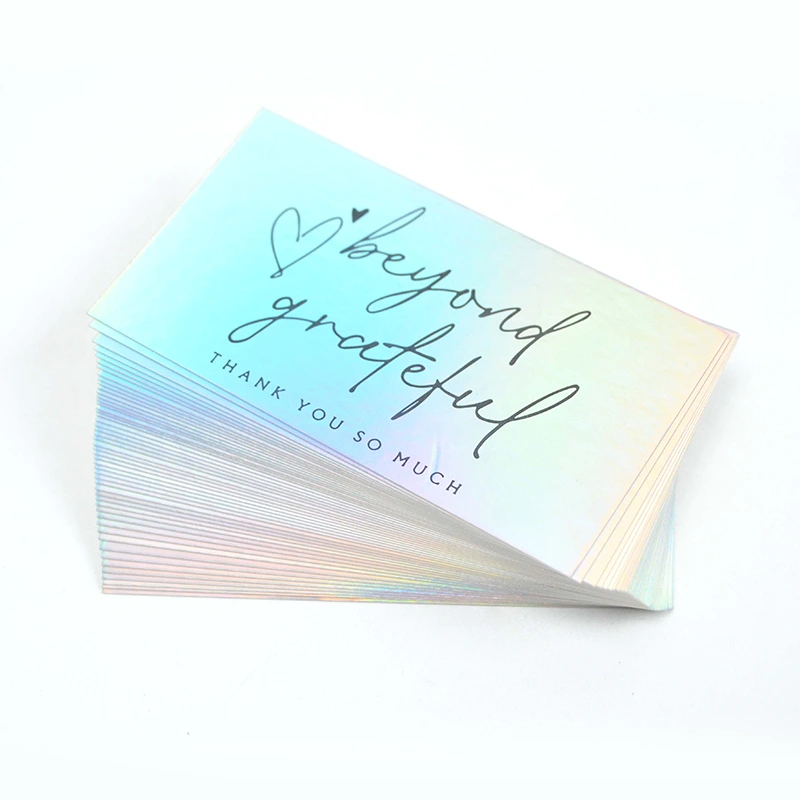 beyond
grateful
THANK YOU SO MUCH